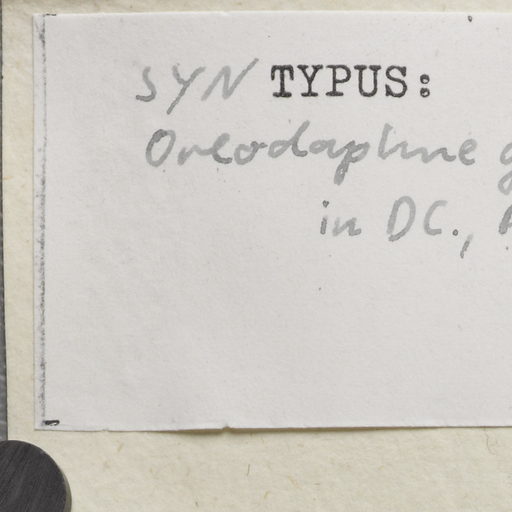 SYN TYPUS:
Oreodaphne g
in DC.,